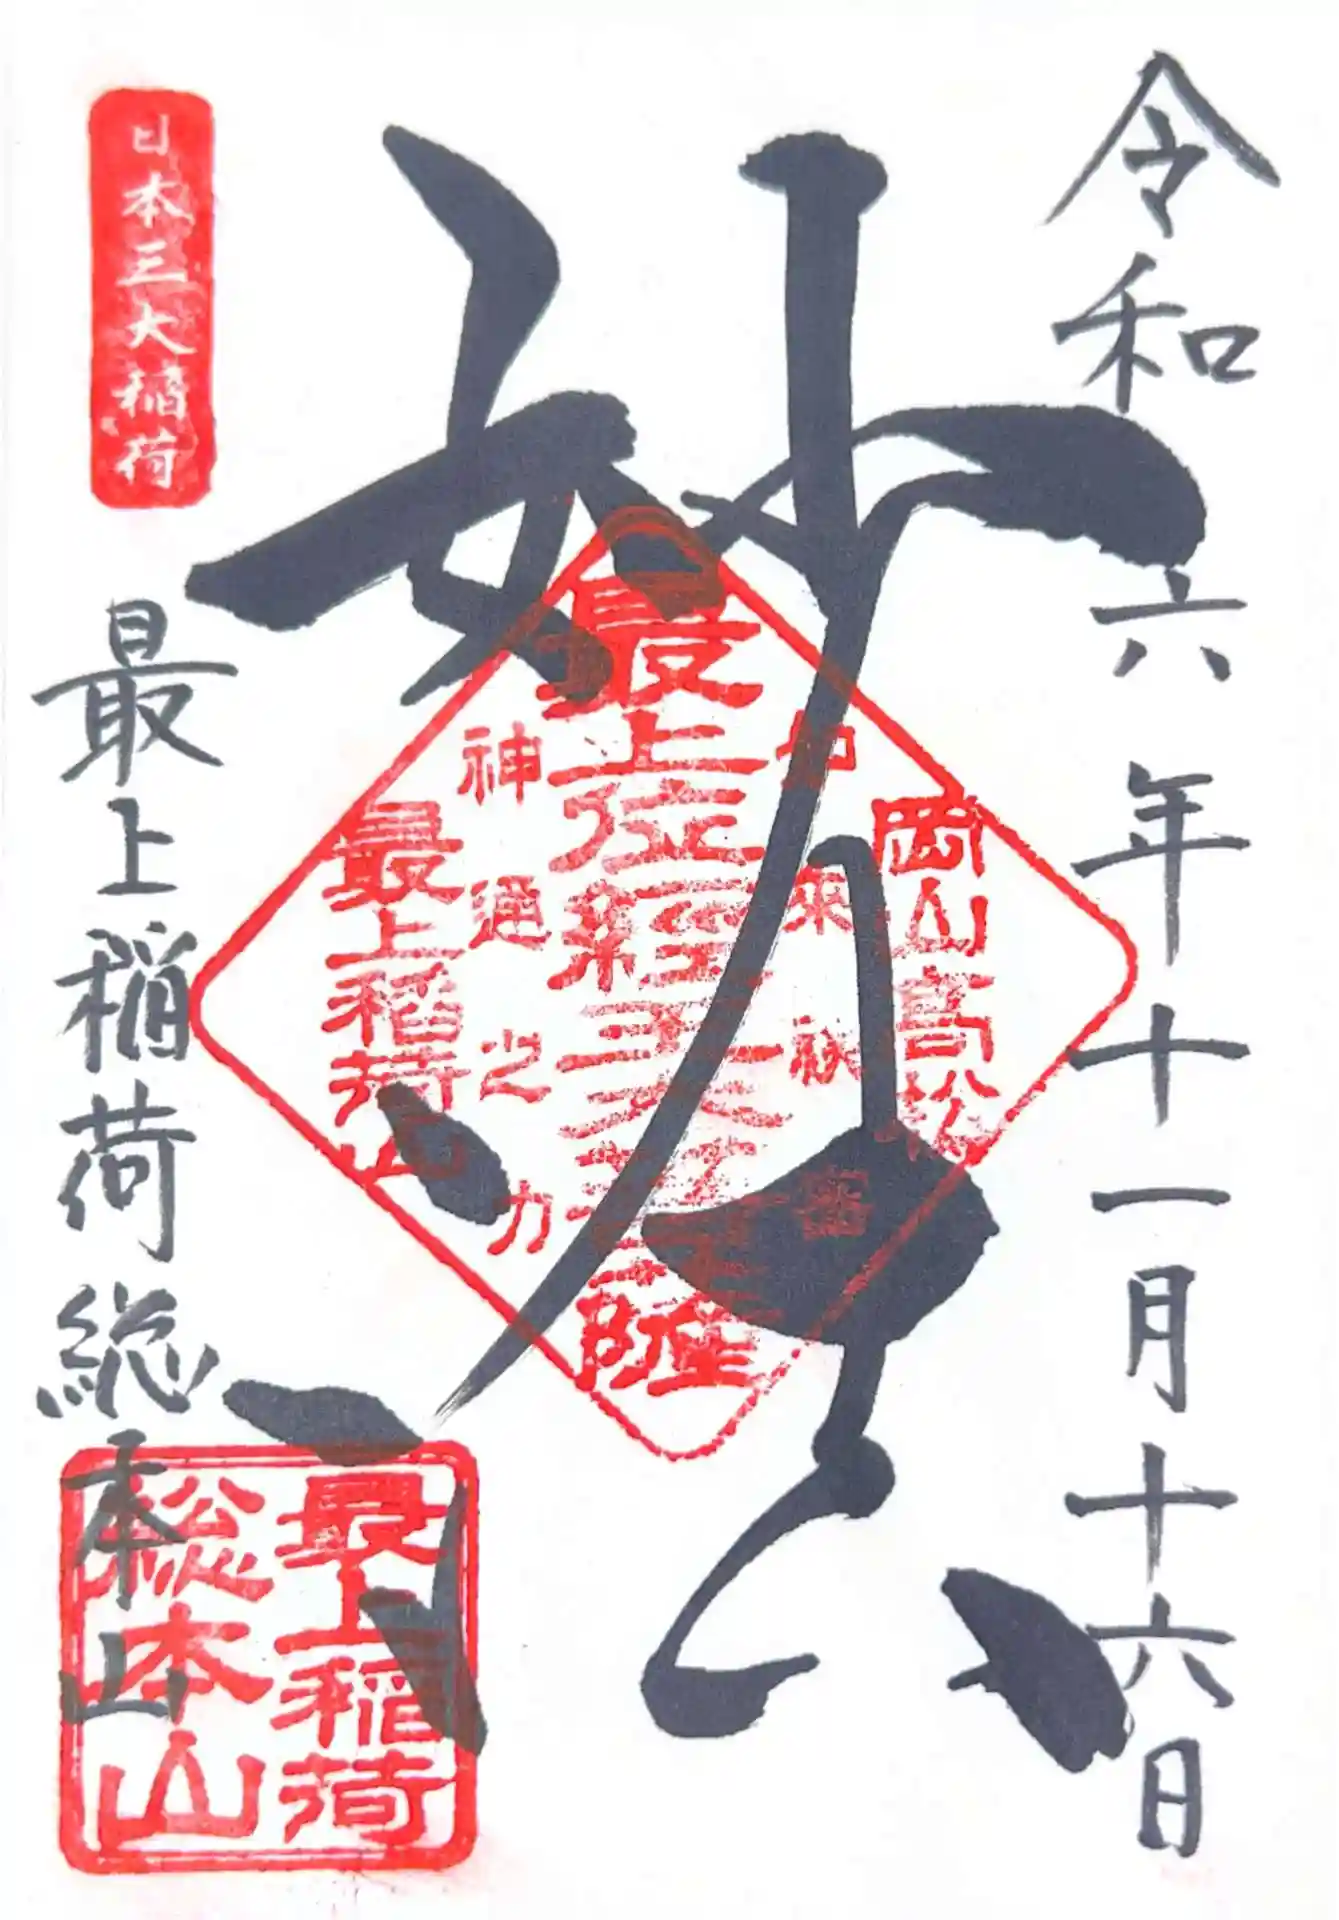 令和六年十一月十六日
妙法
岡山高松
如来秘密
最上位経王大菩薩
神通之力
最上稲荷山
日本三大稲荷
最上稲荷総本山
最上稲荷
総本山